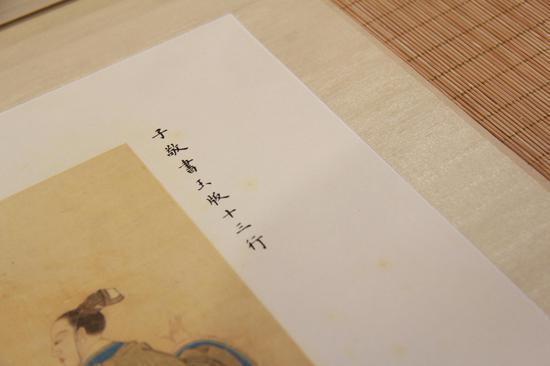 子敬書玉版十三行